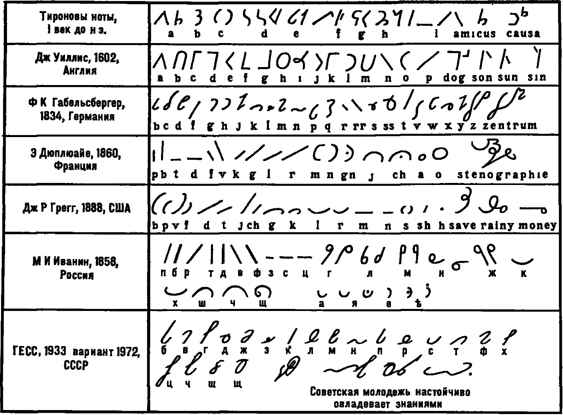 Тироновы ноты,
I век до н э.
a b c d e f g h i l amicus causa
Дж Уиллис, 1602,
Англия
a b c d e f g h i j k l m n o p dog son sun sin
Ф К Габельсбергер,
1834, Германия
b c d f g h j k l m n p q r r r s ss t v w x y z zentrum
Э Дюплойайе, 1860,
Франция
p b t d f v k g l r m n gn j ch a o stenographie
Дж Р Грегг, 1888, США
b p v f d t j ch g k l r m n s sh h save rainy money
М И Иванин, 1858,
Россия
п б р т д в ф з с ц г л м н ж к
х ш ч щ а я е ѣ
ГЕСС, 1933 вариант 1972,
СССР
б в г д ж з к л м н п р с т ф х
ц ч ш щ
Советская молодежь настойчиво
овладевает знаниями